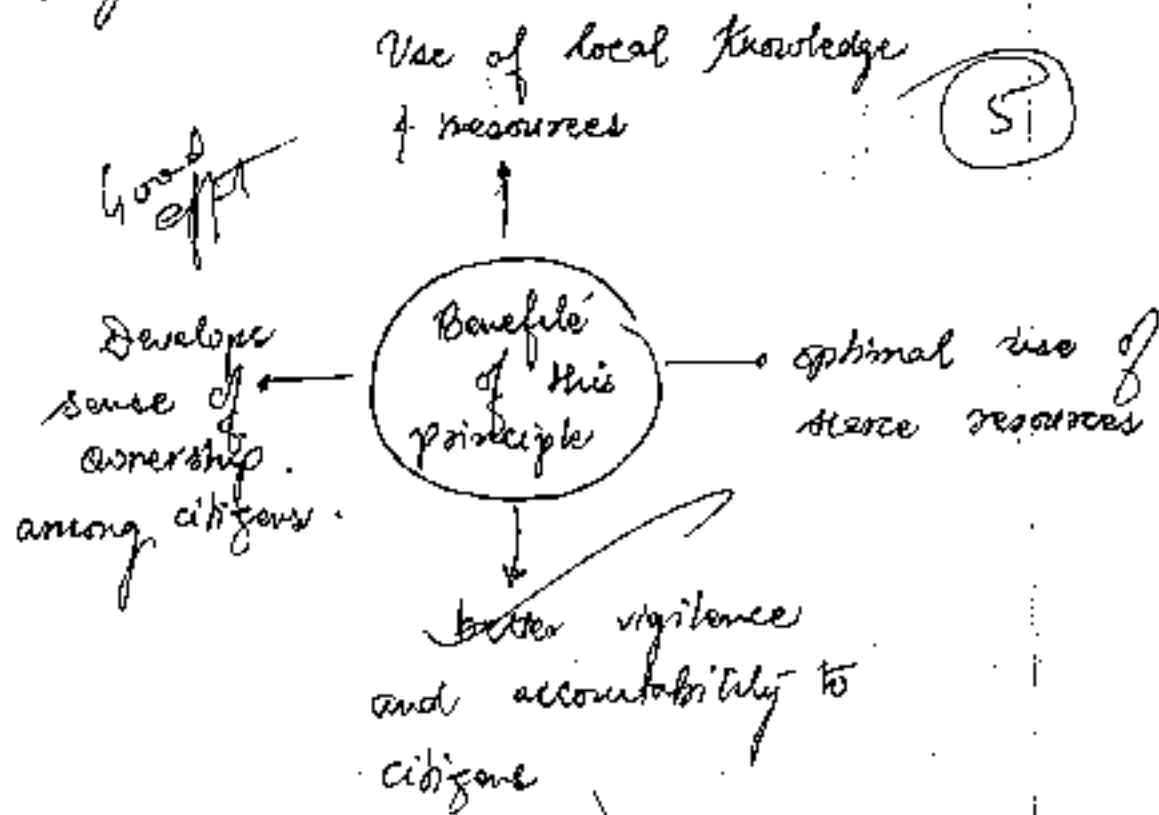 Use of local Knowledge
& resources
5
Good
Benefits
of this
principle
Develops
sense of
ownership.
among citizens.
optimal use of
scarce resources
better vigilance
and accountability to
citizens